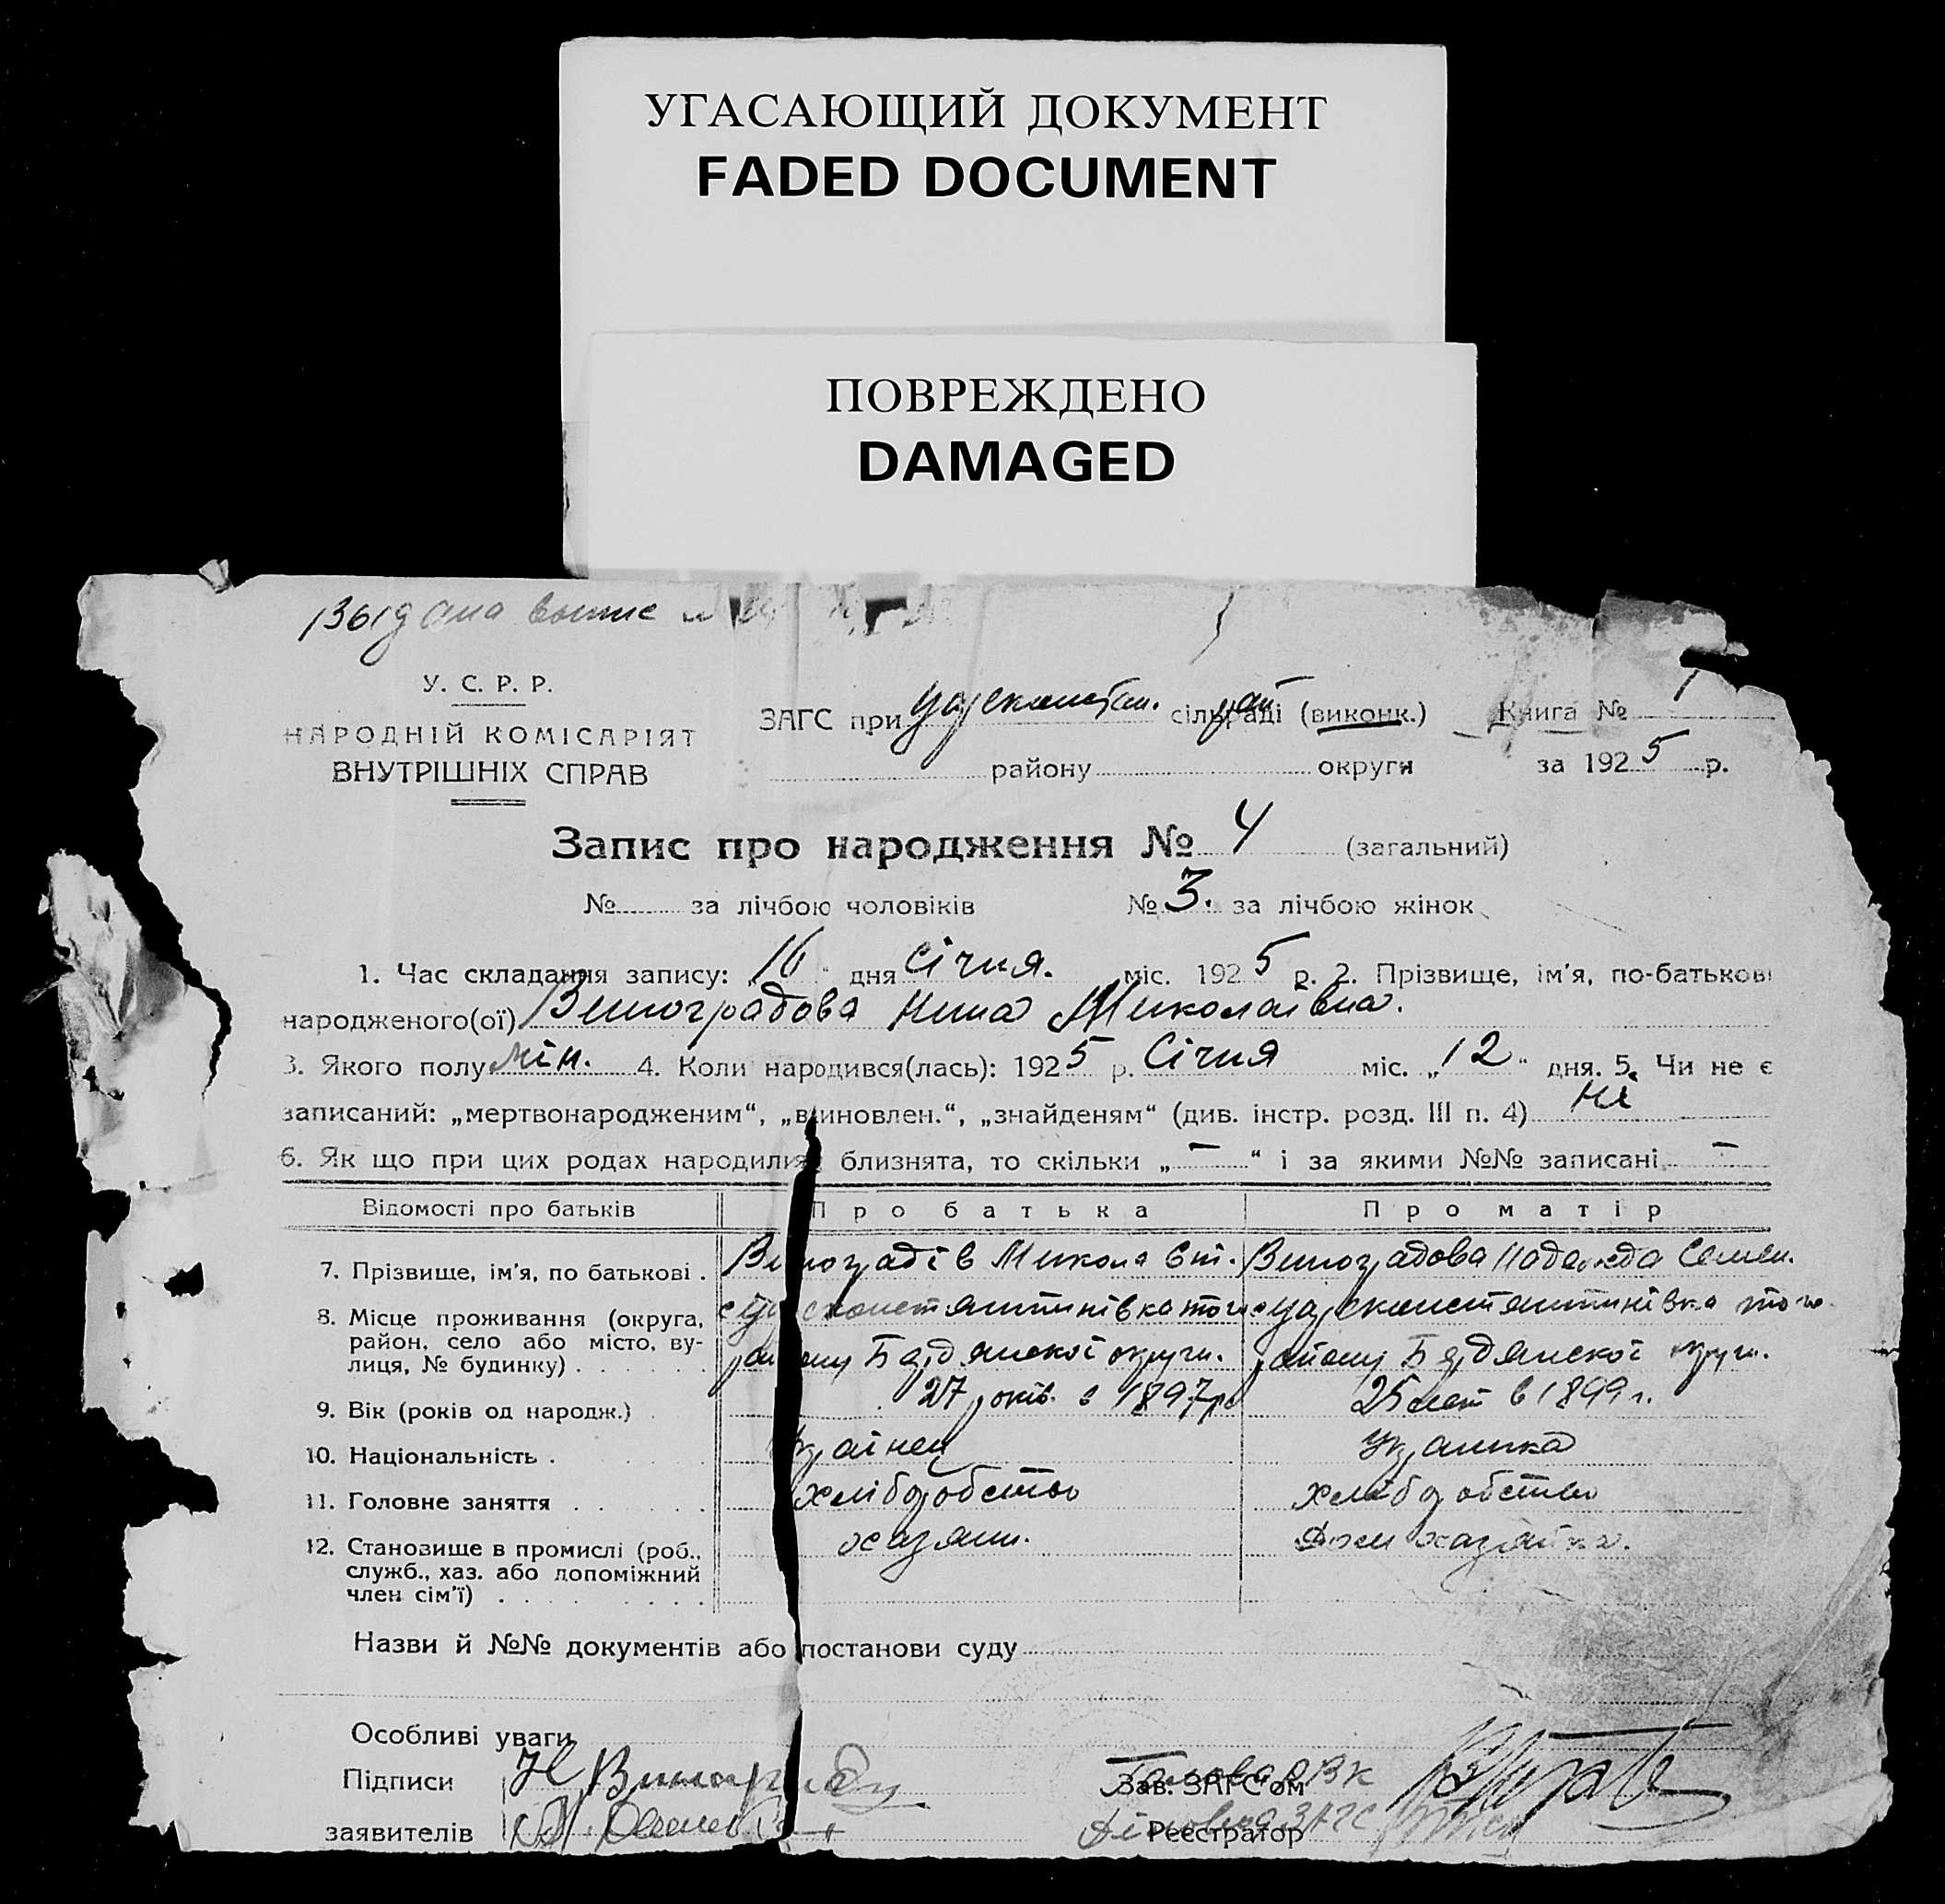 УГАСАЮЩИЙ ДОКУМЕНТ
FADED DOCUMENT
ПОВРЕЖДЕНО
DAMAGED
У. С. Р. Р.
НАРОДНІЙ КОМІСАРІЯТ
ВНУТРІШНІХ СПРАВ
ЗАГС при Цареконстан. сільраді (виконк.) Книга № 1
району округи за 1925 р.
Запис про народження № 4 (загальний)
№ за лічбою чоловіків № 3. за лічбою жінок
1. Час складання запису: 16 дня Січня. міс. 1925 р. 2. Прізвище, ім'я, по-батькові
народженого(ої) Виноградова Нина Миколаівна.
3. Якого полу жін. 4. Коли народився(лась): 1925 р. Січня міс. „12“ дня. 5. Чи не є
записаний: „мертвонародженим“, „всиновлен.“, „знайденям“ (див. інстр. розд. III п. 4) Ні
6. Як що при цих родах народились близнята, то скільки „—“ і за якими №№ записані —
Відомості про батьків Про батька Про матір
7. Прізвище, ім'я, по батькові . Виноградів Микола Виноградова Надежда Семен.
8. Місце проживання (округа, с Цареконстянтинівка того с Цареконстянтинівка того
район, село або місто, ву-
лиця, № будинку) . . . . . району Бердянскоі округи. району Бердянскоі округи.
9. Вік (років од народж.) . 27 років з 1897 р. 25 лет в 1899 г.
10. Національність . Украінец Украинка
11. Головне заняття . . . . хліборобство хліборобство
12. Становище в промислі (роб., хазяин. Дом хазяйка.
служб., хаз. або допоміжний
член сім'ї) . . . . . . . .
Назви й №№ документів або постанови суду
Особливі уваги
Підписи Н Виноград Голова РВК
Зав. ЗАГС'ом
заявителів ЗАГС
Реєстратор